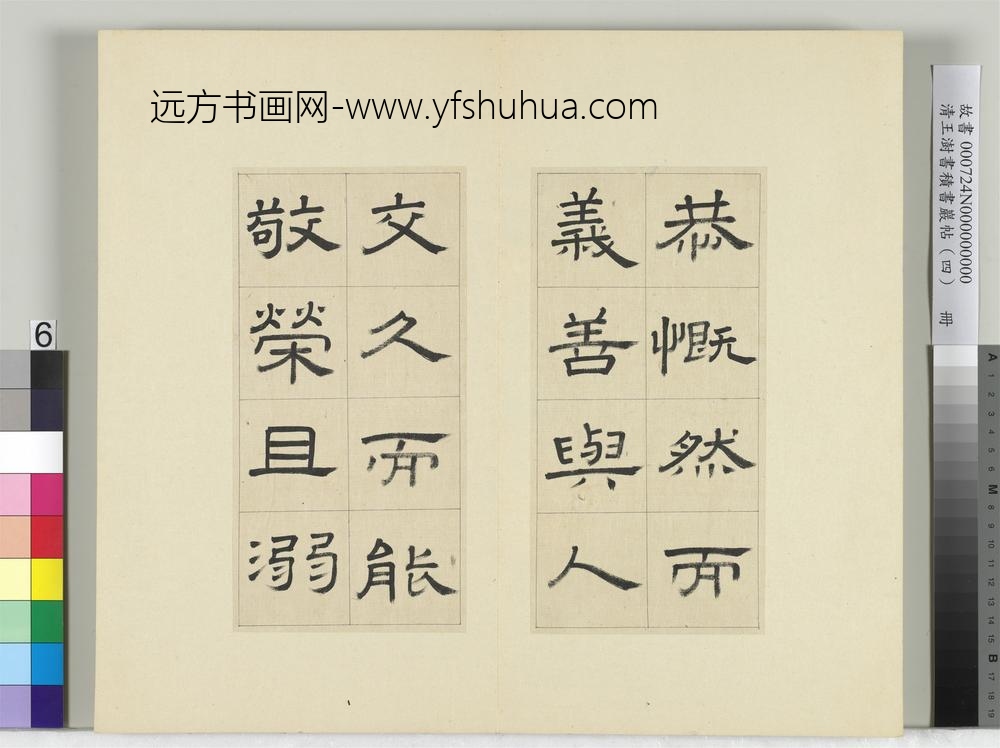 远方书画网-www.yfshuhua.com
恭慨然而
義善與人
交久而能
敬榮且溺
故書 000724N000000000
清王澍書積書巖帖（四） 冊
6
A 1 2 3 4 5 6 M 8 9 10 11 12 13 14 15 B 17 18 19